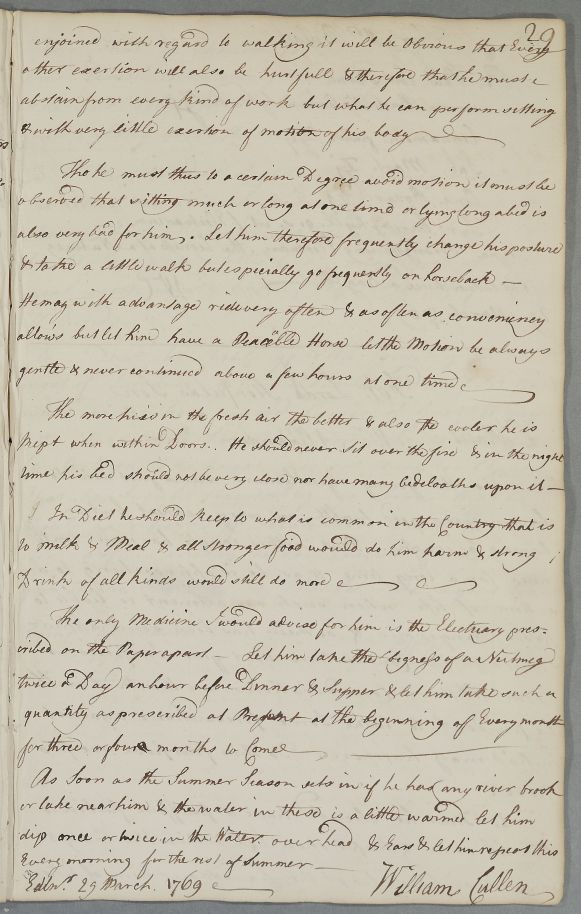 29
enjoined with regard to walking it will be Obvious that Every
other exertion will also be hurtfull & therefore that he must
abstain from every kind of work but what he can perform sitting
& with very little exertion of motion of his body
Tho he must thus to a certain Degree avoid motion it must be
observed that sitting much or long at one time or lying long abed is
also very bad for him. Let him therefore frequently change his posture
& take a little walk but especially go frequently on horseback —
He may with advantage ride very often & as often as conveniency
allows but let him have a Peacable Horse let the Motion be always
gentle & never continued above a few hours at one time
The more he is in the fresh air the better & also the cooler he is
kept when within Doors. He should never Sit over the fire & in the night
time his bed should not be very close nor have many bedcloaths upon it —
In Diet he should keep to what is common in the Country that is
to milk & Meal & all Stronger food would do him harm & strong
Drink of all kinds would still do more
The only Medicine I would advise for him is the Electuary pres=
cribed on the Paper apart — Let him take the bigness of a Nutmeg
twice a Day an hour before Dinner & Supper & let him take such a
quantity as prescribed at Present at the beginning of Every month
for three or four months to Come
As Soon as the Summer Season sets in if he has any river brook
or lake near him & the water in these is a little warmed let him
dip once or twice in the Water over head & Ears & let him repeat this
Every morning for the rest of Summer —
Edinr. 29 March. 1769
William Cullen